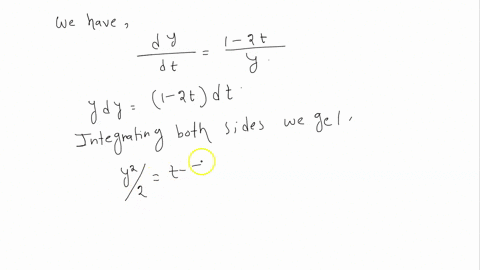 We have,
dy/dt = 1-2t/y.
y dy = (1-2t) dt.
Integrating both sides we get,
y²/2 = t-